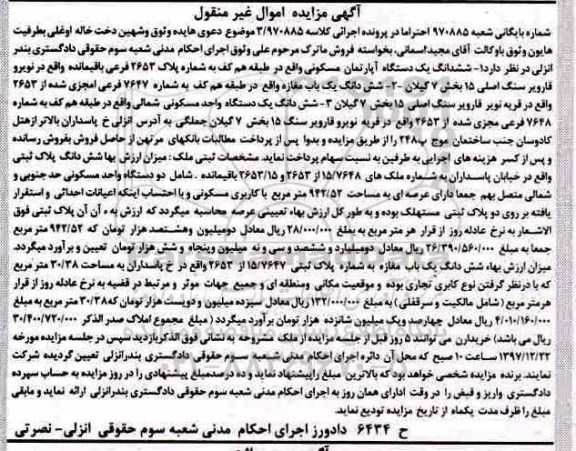 آگهی مزایده اموال غیر منقول
شماره بایگانی شعبه ۹۷۰۸۸۵ احتراما در پرونده اجرائی کلاسه ۳/۹۷۰۸۸۵ موضوع دعوی هایده وثوق وشهین دخت خاله اوغلی بطرفیت
هایون وثوق باوکالت آقای مجید اسمانی، بخواسته فروش ماترک مرحوم علی وثوق اجرای احکام مدنی شعبه سوم حقوقی دادگستری بندر
انزلی در نظر دارد۱- ششدانگ یک دستگاه آپارتمان مسکونی واقع در طبقه هم کف به شماره پلاک ۲۶۵۳ فرعی باقیمانده واقع در نویرو
قارویر سنگ اصلی ۱۵ بخش ۷ گیلان -۲- شش دانگ یک باب مغازه واقع در طبقه هم کف به شماره ۷۶۴۷ فرعی امجزی شده از ۲۶۵۳
واقع در قریه نویر قارویر سنگ اصلی ۱۵ بخش ۷ گیلان ۳- شش دانگ یک دستگاه واحد مسکونی شمالی واقع در طبقه هم کف به شماره
۷۶۴۸ فرعی مجزی شده از ۲۶۵۳ واقع در قریه نویرو قارویر سنگ ۱۵ بخش ۷ گیلان جملگی به آدرس انزلی خ پاسداران بالاتر ازهتل
کادوسان جنب ساختمان موج پ۲۴۸ را از طریق مزایده و بدوا پس از پرداخت مطالبات بانکهای مرتهن از حاصل فروش بفروش رسانده
و پس از کسر هزینه های اجرایی به طرفین به نسبت سهام پرداخت نماید. مشخصات ثبتی ملک: میزان ارزش بها شش دانگ پلاک ثبتی
واقع در خیابان پاسداران به شماره ملک های ۱۵/۷۶۴۸ از ۲۶۵۳ و ۱۵/۲۶۵۳ باقیمانده . شامل دو دستگاه واحد مسکونی حد جنوبی و
شمالی متصل بهم جمعا دارای عرصه ای به مساحت ۹۴۲/۵۲ متر مربع با کاربری مسکونی و با احتساب اینکه اعیانات احداثی و استقرار
یافته بر روی دو پلاک ثبتی مستهلک بوده و به طور کل ارزش بهاء تعیینی عرصه محاسبه میگردد که ارزش به ء آن آن پلاک ثبتی فوق
الاشعار به نرخ عادله روز از قرار هر متر مربع به مبلغ ۲۸/۰۰۰/۰۰۰ ریال معادل دومیلیون وهشتصد هزار تومان که ۹۴۲/۵۲ متر مربع
جمعا به مبلغ ۲۶/۳۹۰/۵۶۰/۰۰۰ ریال معادل دومیلیارد و ششصد و سی و نه میلیون وپنجاه و شش هزار تومان تعیین و برآورد میگردد.
میزان ارزش بهاء شش دانگ یک باب مغازه به شماره پلاک ثبتی ۱۵/۷۶۴۷ از ۲۶۵۳ واقع در خ پاسداران به مساحت ۳۰/۳۸ متر مربع
که با درنظر گرفتن نوع کابری تجاری بوده و موقعیت مکانی ومنطقه ای و جمیع جهات موثر و مرتبط در قضیه به نرخ عادله روز از قرار
هرمتر مربع (شامل مالکیت و سرقفلی) به مبلغ ۱۳۲/۰۰۰/۰۰۰ ریال معادل سیزده میلیون و دویست هزار تومان که۳۰/۳۸ متر مربع به مبلغ
۴/۰۱۰/۱۶۰/۰۰۰ ریال معادل چهارصد ویک میلیون شانزده هزار تومان برآورد میگردد ( مبلغ مجموع املاک صدر الذکر ۳۰/۴۰۰/۷۲۰/۰۰۰
ریال می باشد) خریداران می توانند ۵ روز قبل از جلسه مزایده از ملک مشروحه به نشانی فوق الذکر بازدید سپس در جلسه مزایده مورخه
۱۳۹۷/۱۲/۲۲ ساعت ۱۰ صبح که محل آن دائره اجرای احکام مدنی شعبه سوم حقوقی دادگستری بندرانزلی تعیین گردیده شرکت
نمایند. برنده مزایده شخصی خواهد بود که بالاترین مبلغ را پیشنهاد نماید و ده درصد مبلغ پیشنهادی را در روز مزایده به حساب سپرده
دادگستری واریز و قبض را در وقت اداری همان روز به اجرای احکام مدنی شعبه سوم حقوقی دادگستری بندرانزلی ارائه نماید و مابقی
مبلغ را ظرف مدت یکماه از تاریخ مزایده تودیع نماید.
ح ۶۴۳۴ دادورز اجرای احکام مدنی شعبه سوم حقوقی انزلی- نصرتی